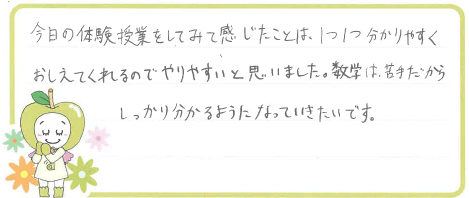 今日の体験授業をしてみて感じたことは、1つ1つ分かりやすく
おしえてくれるのでやりやすいと思いました。数学は、苦手だから
しっかり分かるようになっていきたいです。